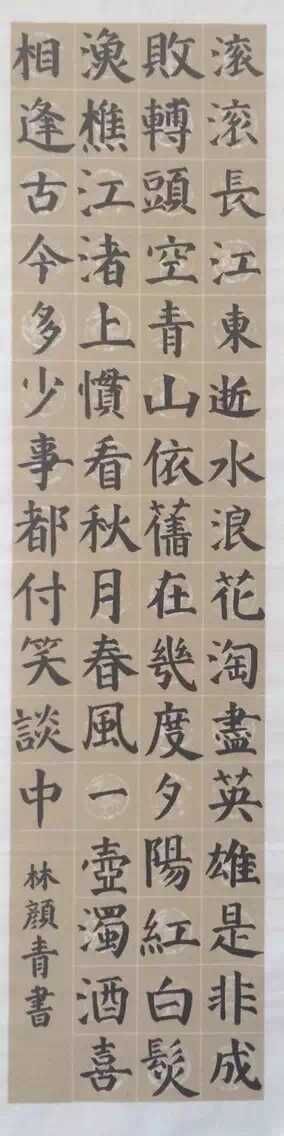 滚滚長江東逝水浪花淘盡英雄是非成
敗轉頭空青山依舊在幾度夕陽紅白髮
漁樵江渚上慣看秋月春風一壺濁酒喜
相逢古今多少事都付笑談中
林顔青書